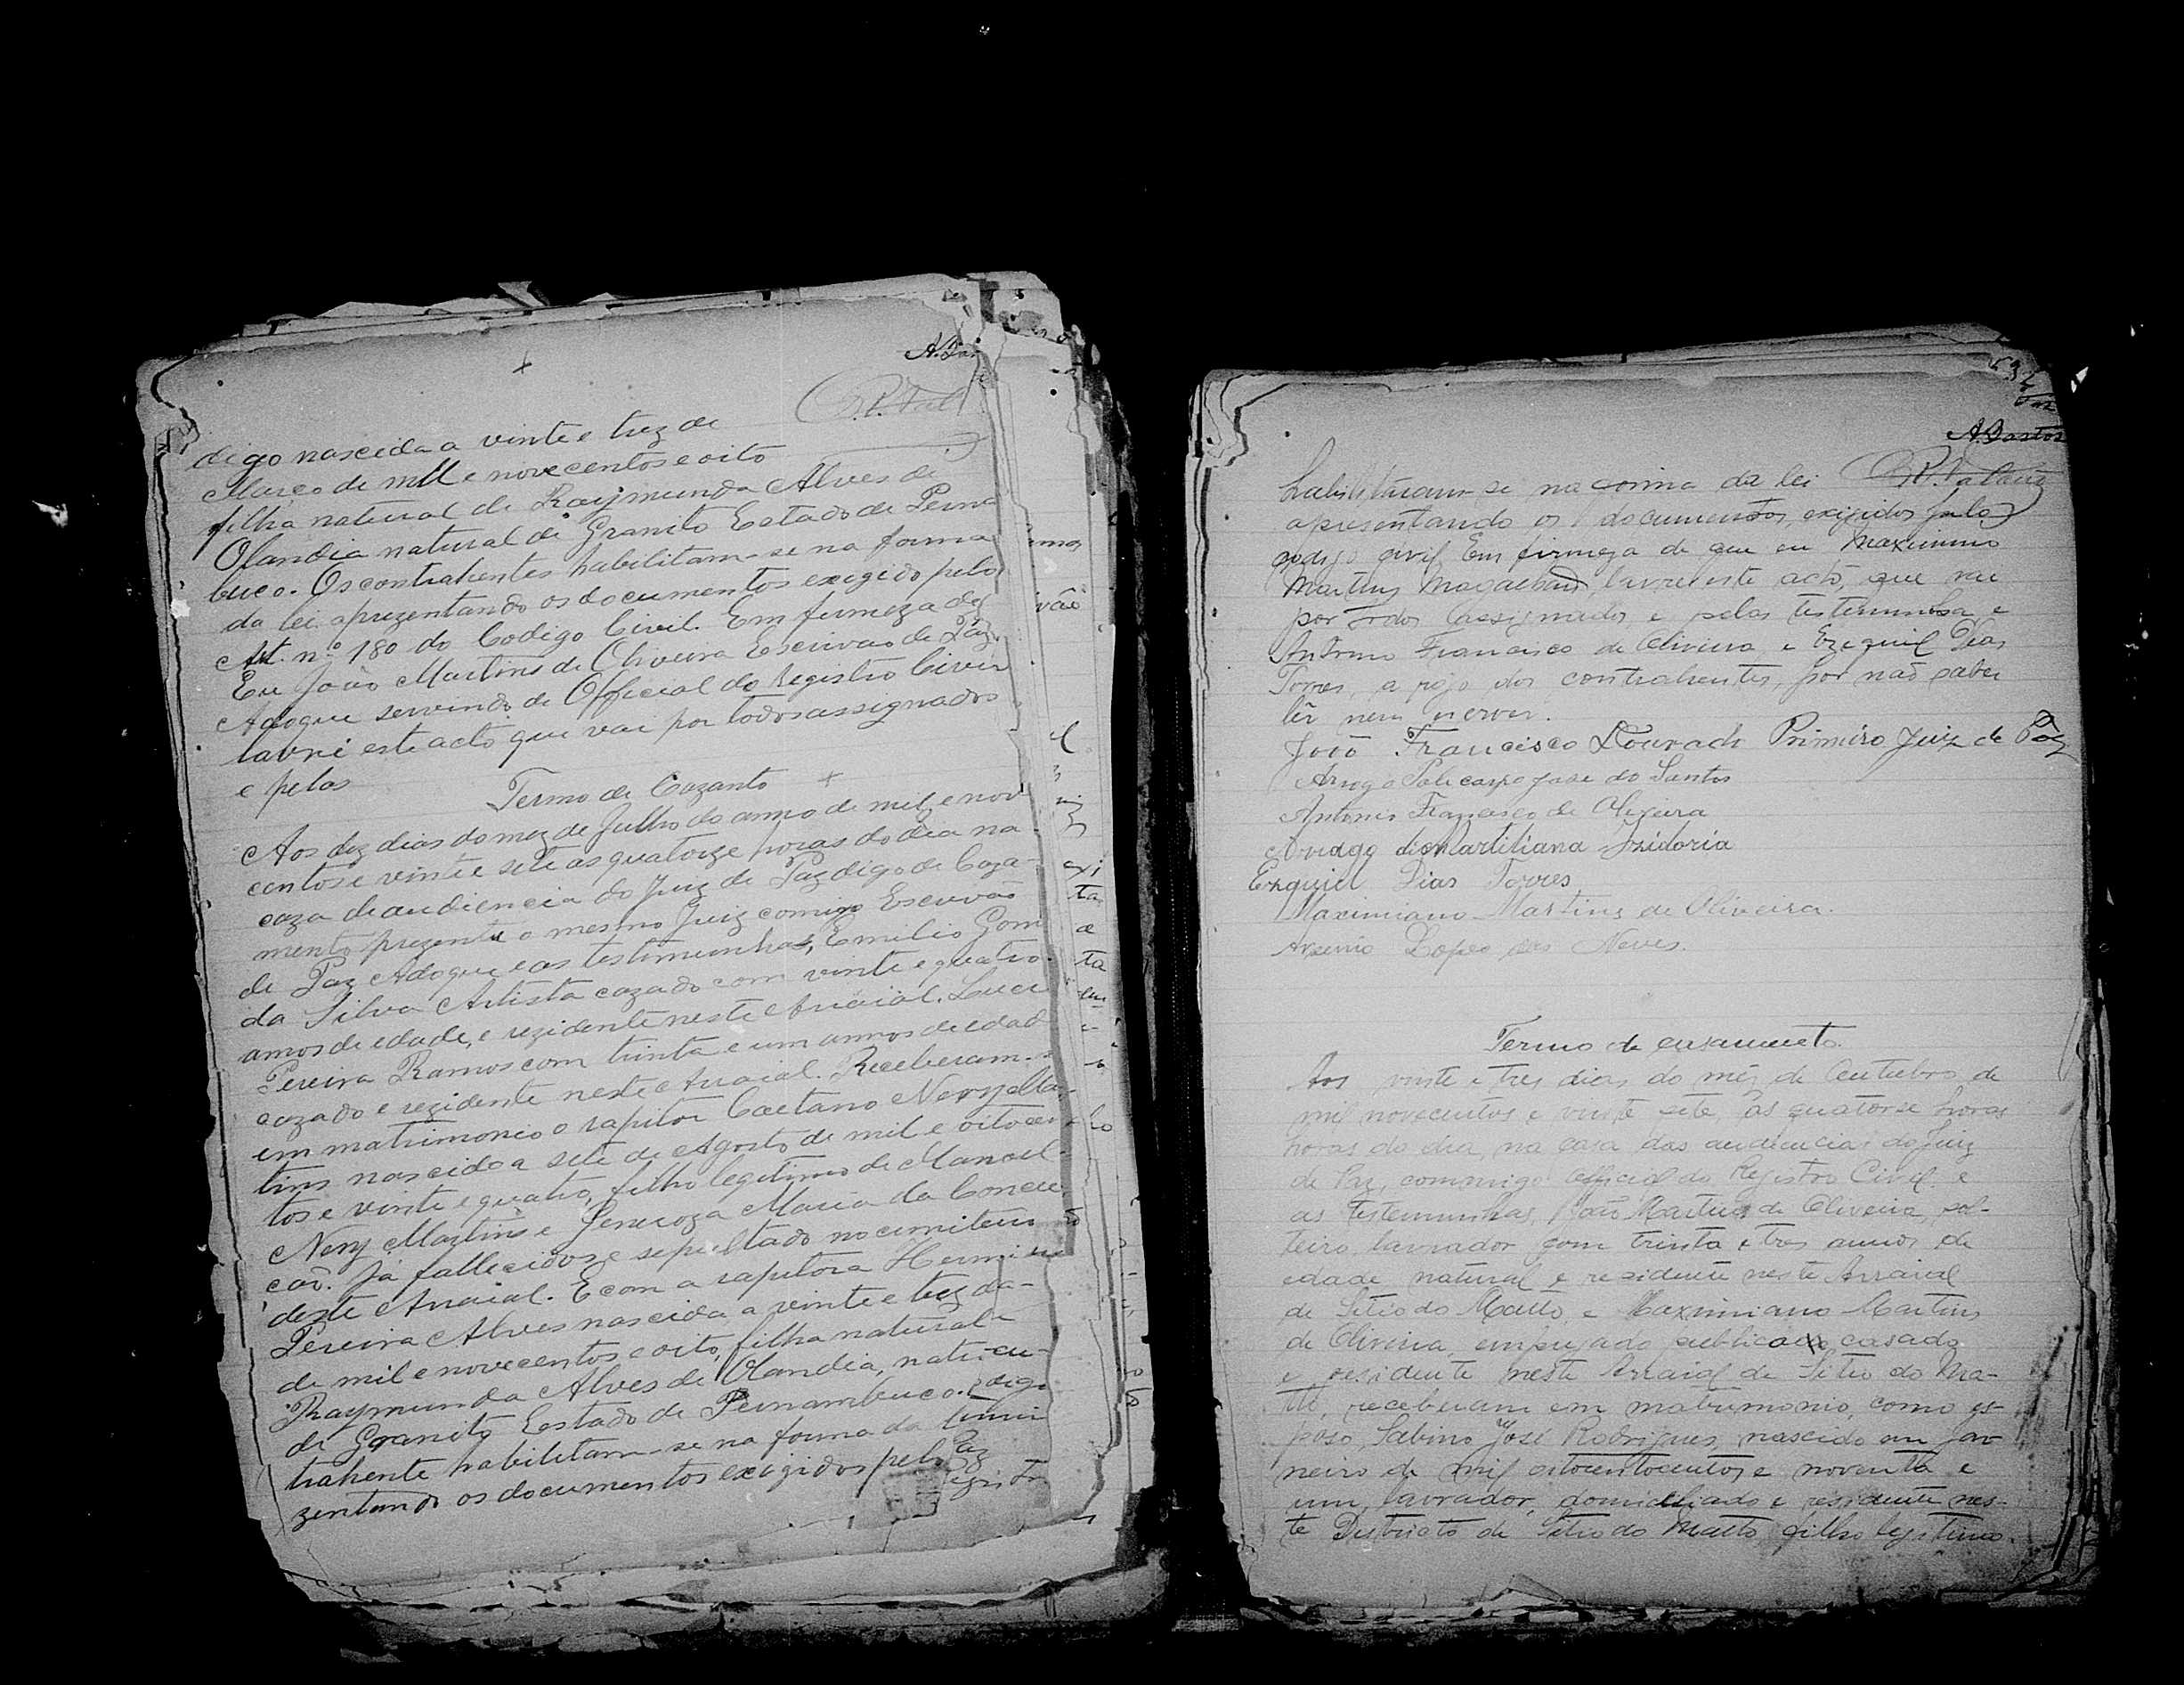 A. Bas
digo nascida a vinte e trez de
Março de mil e novecentos e oito
filha natural de Raymunda Alves di
Olandia natural di Granito Estado de Perna
buco. Os contrahentes habilitam-se na forma
da lei aprezentando os documentos exegido pelo
Art. nº 180 do Codigo Civil. Em firmeza de
Eu João Martins de Oliveira Escrivão de Paz
Adoque servindo de Official do Registro Civil
lavrei este acto que vai por todos assignados
e pelas
Termo de Cazanto
Aos dez dias do mez de Julho do anno de mil e nov
centos e vinte e sete as quatorze horas do dia na
caza de audiencia do Juiz de Paz digo de Caza-
mento prezente o mesmo Juiz comigo Escrivão
de Paz Adoque e as testimunhas, Emilio Gom
da Silva Artista cazado com vinte e quatro
annos de edade, e rezidente neste Arraial. Luci
Pereira Ramos com trinta e um annos de edad
cazado e rezidente neste Arraial. Receberam-
em matrimonio o rapitor Caetano Nery Mar-
tins nascido a sete de Agosto de mil e oitocen
tos e vinte e quatro, filho legitimo de Manoel
Nery Martins e Generoza Maria da Concei
cão. Já fallecidos e sepultado no cimiteiro
deste Arraial. E com a rapitora Hermi
Pereira Alves nascida a vinte e trez da-
de mil e novecentos e oito, filha natural
Raymunda Alves de Olandia, natu
de Granito Estado de Pernambuco.
trahente habilitam-se na forma da
zentando os documentos exegidos pelo
A. Bastos
habilitaram-se na forma da lei
apresentando os documentos, exigidos pelo
codigo civil Em firmeza de que eu Maximino
Martins Magalhães, lavrei este acto, que vae
por todos assignados e pelas testemunhas e
Antonio Francisco de Oliveira e Ezequiel Dias
Torres, a rojo dos contrahentes, por não saber
lêr nem escrever.
João Francisco Dourado Primeiro Juiz de Paz
Arrogo Policarpo Jose do Santos
Antonio Francisco de Oliveira
Arrogo de Martiliana Izidoria
Ezquiel Dias Torres
Maximiano Martins de Oliveira.
Arsenio Lopes das Neves.
Termo de casamento.
Aos vinte e tres dias do mês de Outubro de
mil novecentos e vinte sete, ás quatorse horas
horas do dia, na casa das audiencias do Juiz
de Paz, commigo official do Registro Civil e
as testemunhas, João Martins de Oliveira, sol-
teiro, lavrador com trinta e tres annos de
edade natural e residente neste Arraial
de Sitio do Matto, e Maximiano Martins
de Oliveira, empregado publico, casado
e residente neste Arraial de Sitio do Ma-
tto, receberam em matrimonio, como es-
poso, Sabino José Rodrigues, nascido em Jan
neiro de mil oitocentocentos e noventa e
um, lavrador, domiciliado e residente nes-
te Districto de Sitio do Matto, filho legitimo